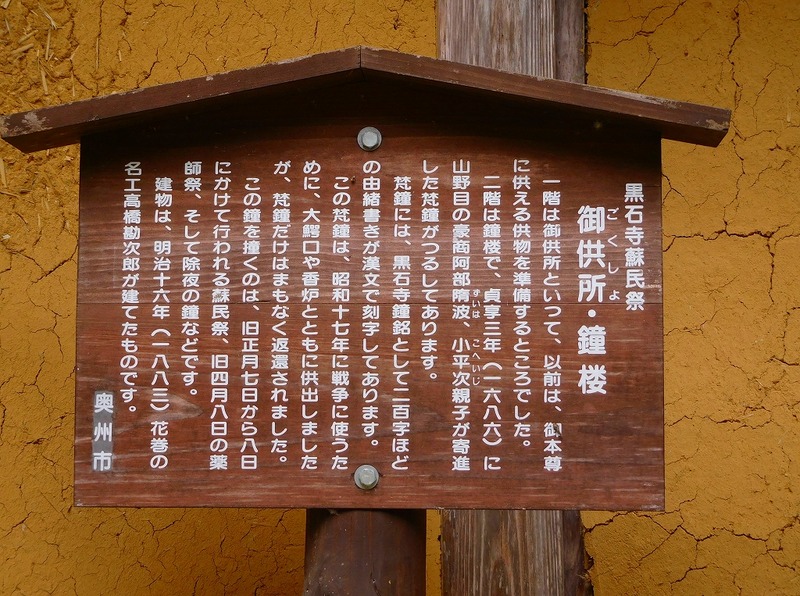 黒石寺蘇民祭
ごくしょ
御供所・鐘楼
一階は御供所といって、以前は、御本尊
に供える供物を準備するところでした。
二階は鐘楼で、貞享三年（一六八六）に
山野目の豪商阿部隋波、小平次親子が寄進
ずいは こへいじ
した梵鐘がつるしてあります。
梵鐘には、黒石寺鐘銘として二百字ほど
の由緒書きが漢文で刻字してあります。
この梵鐘は、昭和十七年に戦争に使うた
めに、大鰐口や香炉とともに供出しました
が、梵鐘だけはまもなく返還されました。
この鐘を撞くのは、旧正月七日から八日
にかけて行われる蘇民祭、旧四月八日の薬
師祭、そして除夜の鐘などです。
建物は、明治十六年（一八八三）花巻の
名工高橋勘次郎が建てたものです。
奥州市